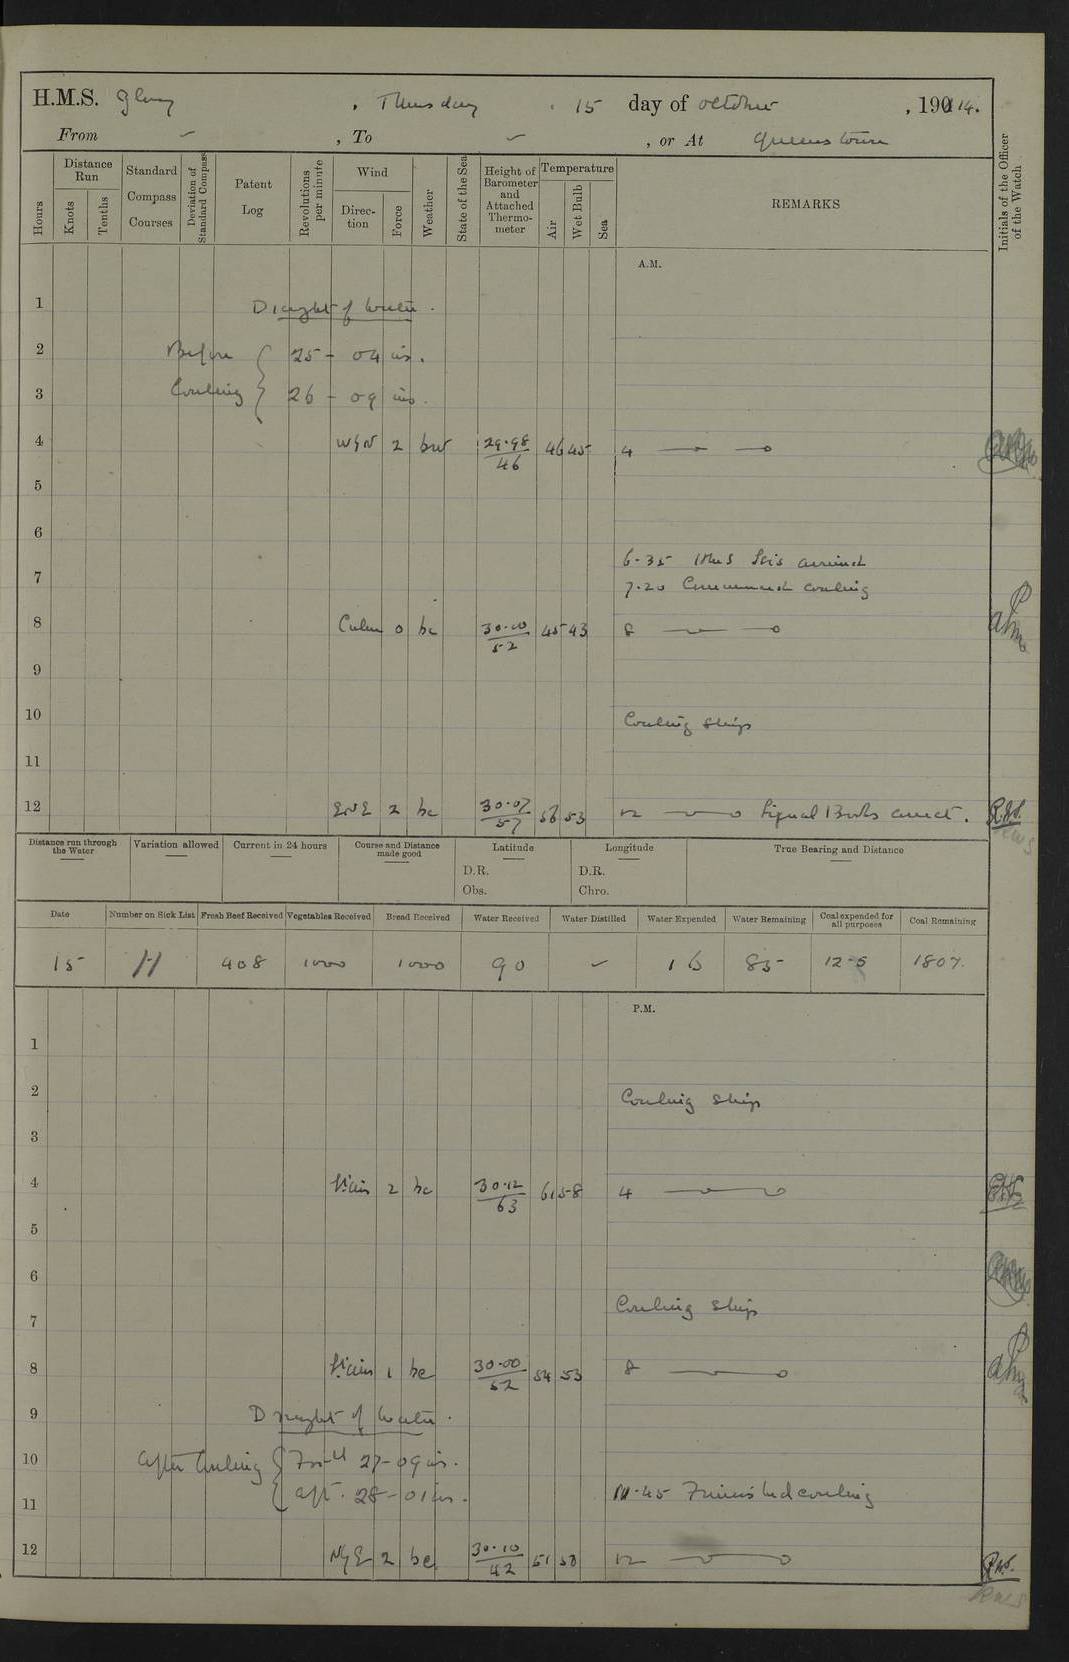 H.M.S. Glory , Thursday , 15 day of October , 1914.
From – , To – , or At Queenstown
Hours
Distance Run
Knots
Tenths
Standard Compass Courses
Deviation of Standard Compass
Patent Log
Revolutions per minute
Wind
Direction
Force
Weather
State of the Sea
Height of Barometer and Attached Thermometer
Temperature
Air
Wet Bulb
Sea
REMARKS
Initials of the Officer of the Watch
A.M.
1
Draught of Water.
2 Before 25 - 04 ins.
3 Coaling 26 - 09 ins.
4 W y N 2 bw 29.98/46 46 45 4
5
6
6-35 HMS Isis arrived
7
7.20 Commenced coaling
8 Calm 0 bc 30.00/52 45 43 8
9
10 Coaling Ship
11
12 ENE 2 bc 30.07/57 56 53 12 Signal Books correct.
Distance run through the Water
Variation allowed
Current in 24 hours
Course and Distance made good
Latitude
D.R.
Obs.
Longitude
D.R.
Chro.
True Bearing and Distance
Date Number on Sick List Fresh Beef Received Vegetables Received Bread Received Water Received Water Distilled Water Expended Water Remaining Coal expended for all purposes Coal Remaining
15 11 408 1000 1000 90 – 16 85 12-5 1807.
P.M.
1
2 Coaling Ship
3
4 2 bc 30.12/63 61 58 4
5
6
Coaling Ship
7
8 1 bc 30.00/52 54 53 8
9 Draught of Water.
10 After Coaling For'd 27-09 ins.
11 aft. 28-01 ins. 10-45 Finished coaling
12 N y E 2 bc 30.10/42 51 50 12